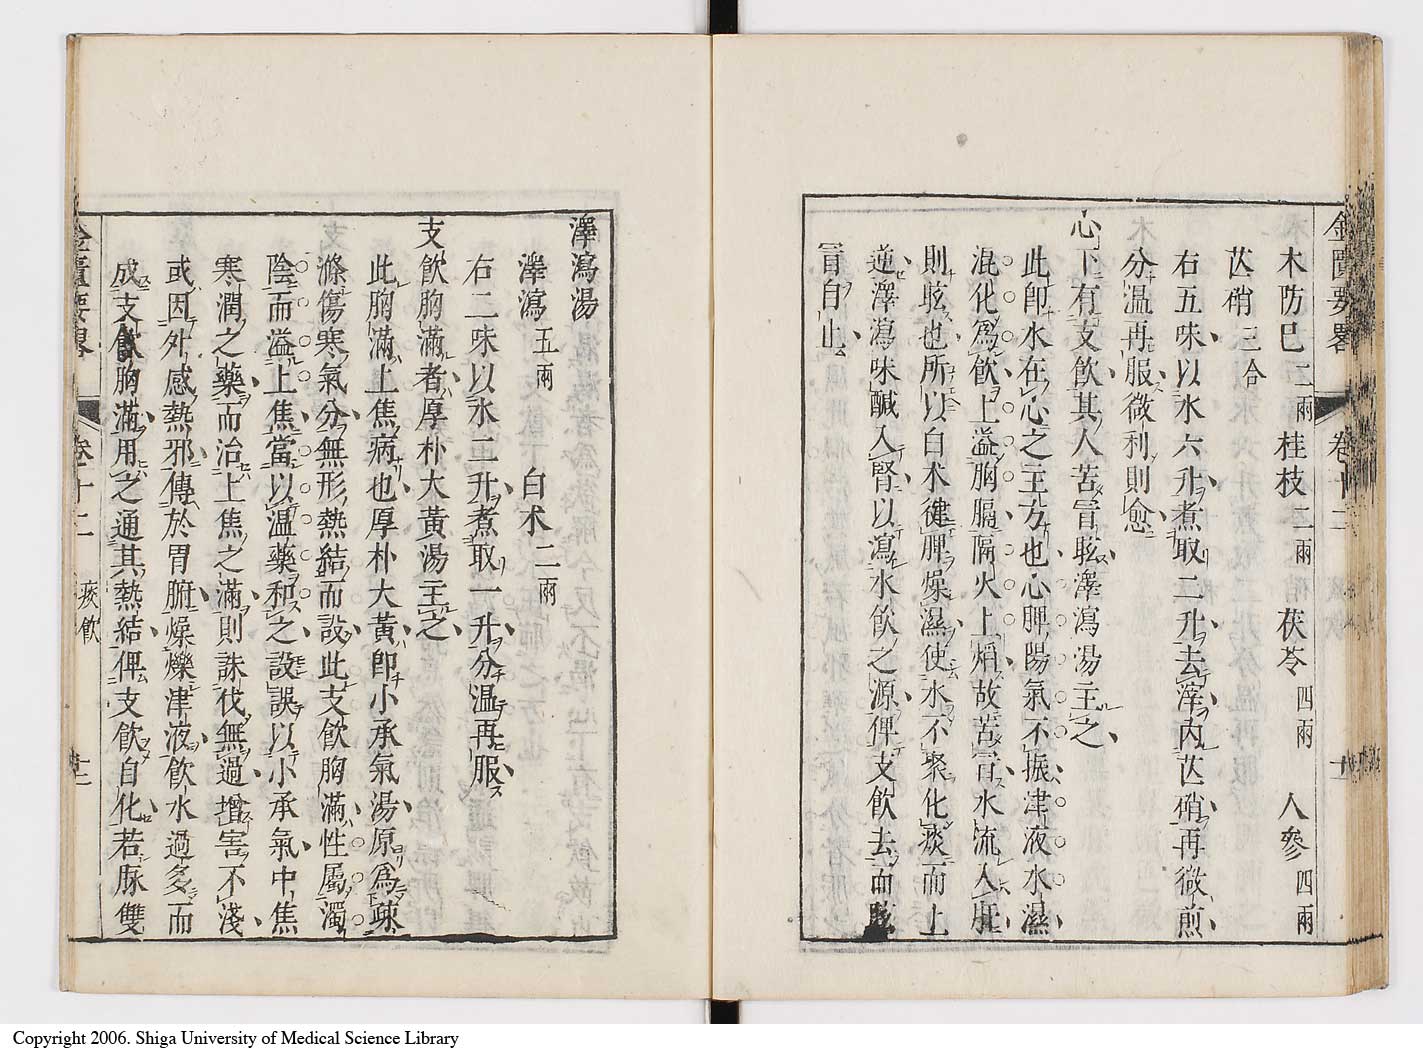 金匱要畧 卷十二 十一
木防已二兩 桂枝二兩 茯苓四兩 人參四兩
芒硝三合
右五味以水六升煮取二升去滓内芒硝再微煎
分温再服微利則愈
心下有支飲其人苦冒眩澤瀉湯主之
此即水在心之主方也心脾陽氣不振津液水濕
混化為飲上溢胸膈隔火上熖故苦冒水流入肝
則眩也所以白术健脾燥濕使水不聚化痰而上
逆澤瀉味鹹入腎以瀉水飲之源俾支飲去而眩
冒自止
澤瀉湯
澤瀉五兩 白术二兩
右二味以水二升煮取一升分温再服
支飲胸滿者厚朴大黃湯主之
此胸滿上焦病也厚朴大黃即小承氣湯原為疎
滌傷寒氣分無形熱結而設此支飲胸滿性屬濁
陰而溢上焦當以温藥和之設誤以小承氣中焦
寒潤之藥而治上焦之滿則誅伐無過增害不淺
或因外感熱邪傳於胃腑燥爍津液飲水過多而
成支飲胸滿用之通其熱結俾支飲自化若脉雙
金匱要畧 卷十二 痰飲 十二
Copyright 2006. Shiga University of Medical Science Library